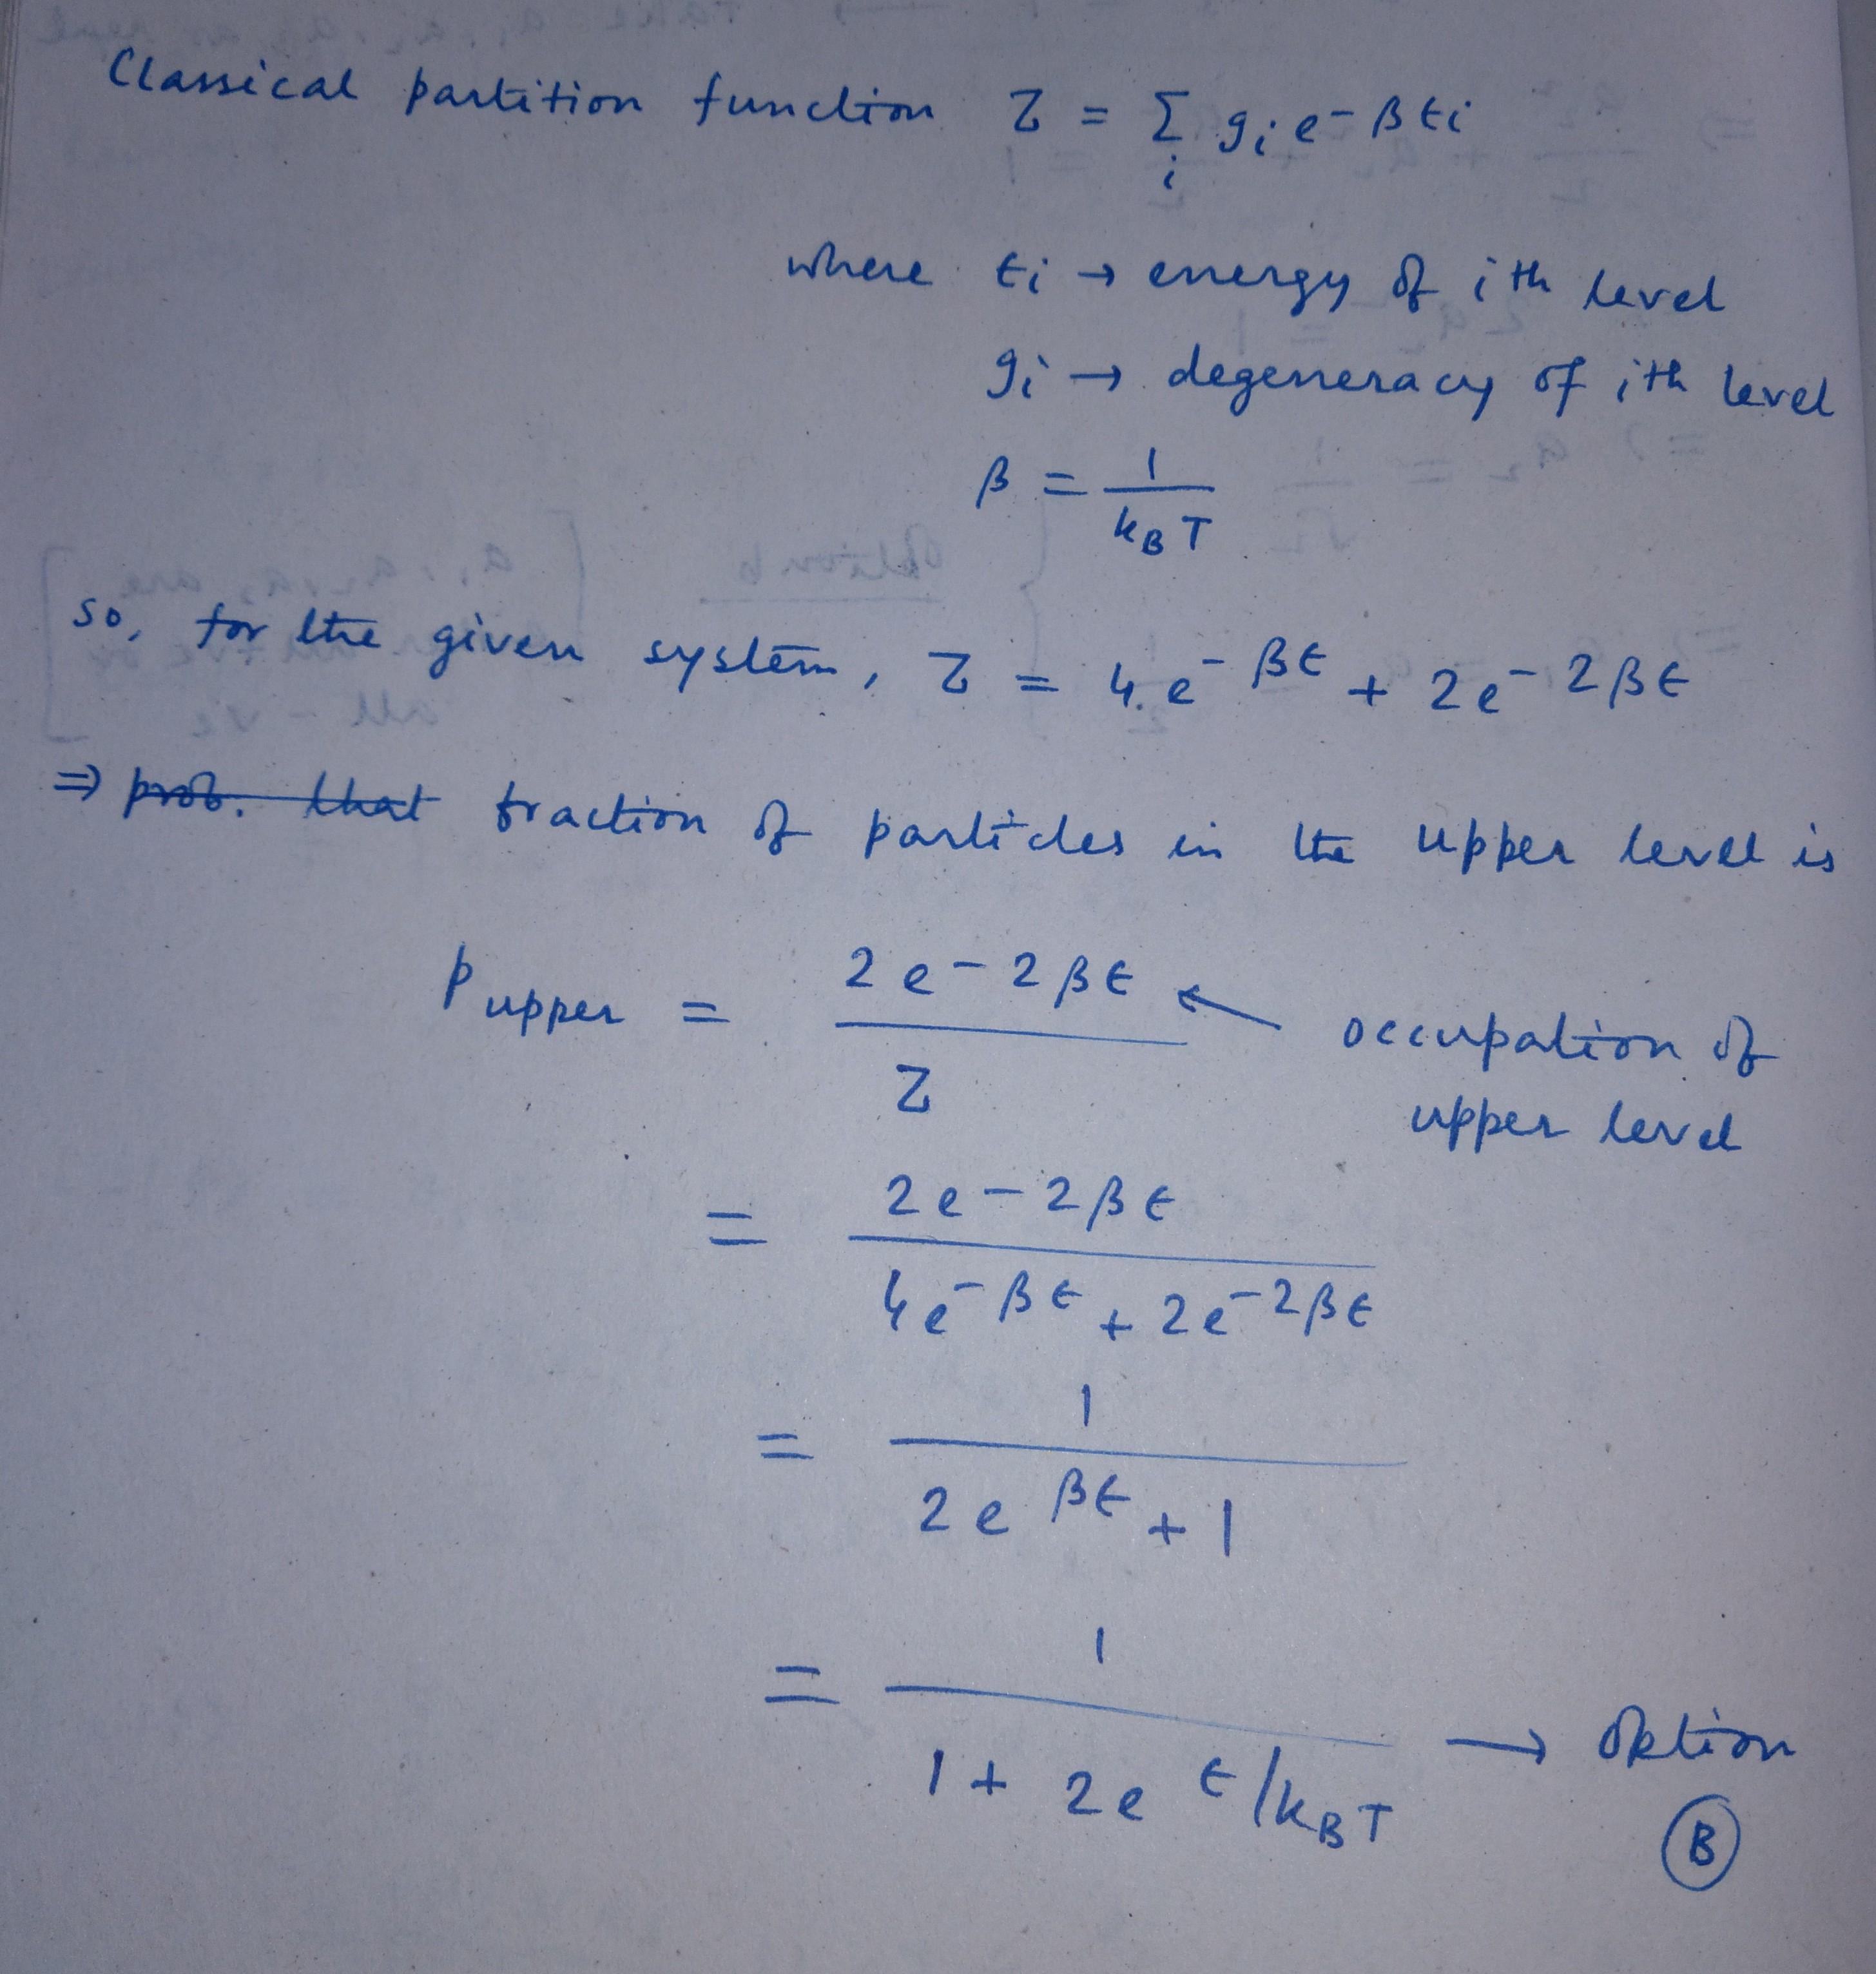 Classical partition function Z = Σ_i g_i e^{-βϵ_i}
where ϵ_i → energy of i^{th} level
g_i → degeneracy of i^{th} level
β = \frac{1}{k_B T}
so, for the given system, Z = 4.e^{-βϵ} + 2e^{-2βϵ}
⇒ ~~prob. that~~ fraction of particles in the upper level is
P_{upper} = \frac{2e^{-2βϵ}}{Z} ← occupation of
upper level
= \frac{2e^{-2βϵ}}{4e^{-βϵ} + 2e^{-2βϵ}}
= \frac{1}{2e^{βϵ} + 1}
= \frac{1}{1 + 2e^{ϵ/k_B T}} → option
B